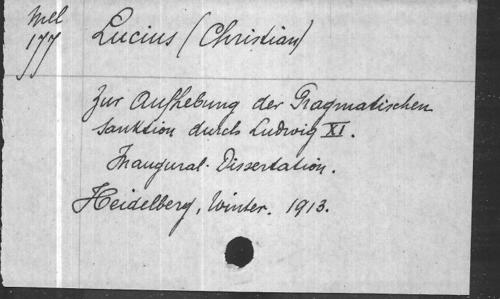 Mel
177
Lucius (Christian)
Zur Aufhebung der Pragmatischen
Sanktion durch Ludwig XI.
Inaugural-Dissertation.
Heidelberg, Winter. 1913.